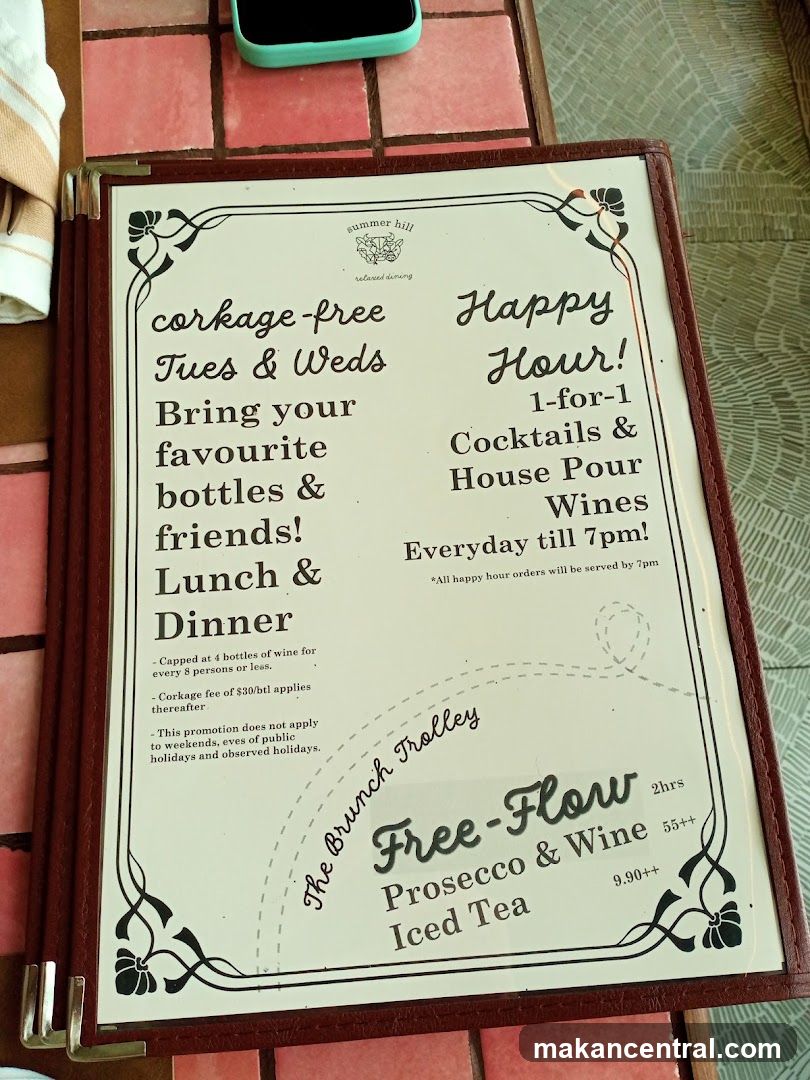 summer hill
relaxed dining
corkage-free
Tues & Weds
Bring your
favourite
bottles &
friends!
Lunch &
Dinner
- Capped at 4 bottles of wine for
every 8 persons or less.
- Corkage fee of $30/btl applies
thereafter
- This promotion does not apply
to weekends, eves of public
holidays and observed holidays.
Happy
Hour!
1-for-1
Cocktails &
House Pour
Wines
Everyday till 7pm!
*All happy hour orders will be served by 7pm
The Brunch Trolley
Free-Flow 2hrs
Prosecco & Wine 55++
Iced Tea 9.90++
makancentral.com